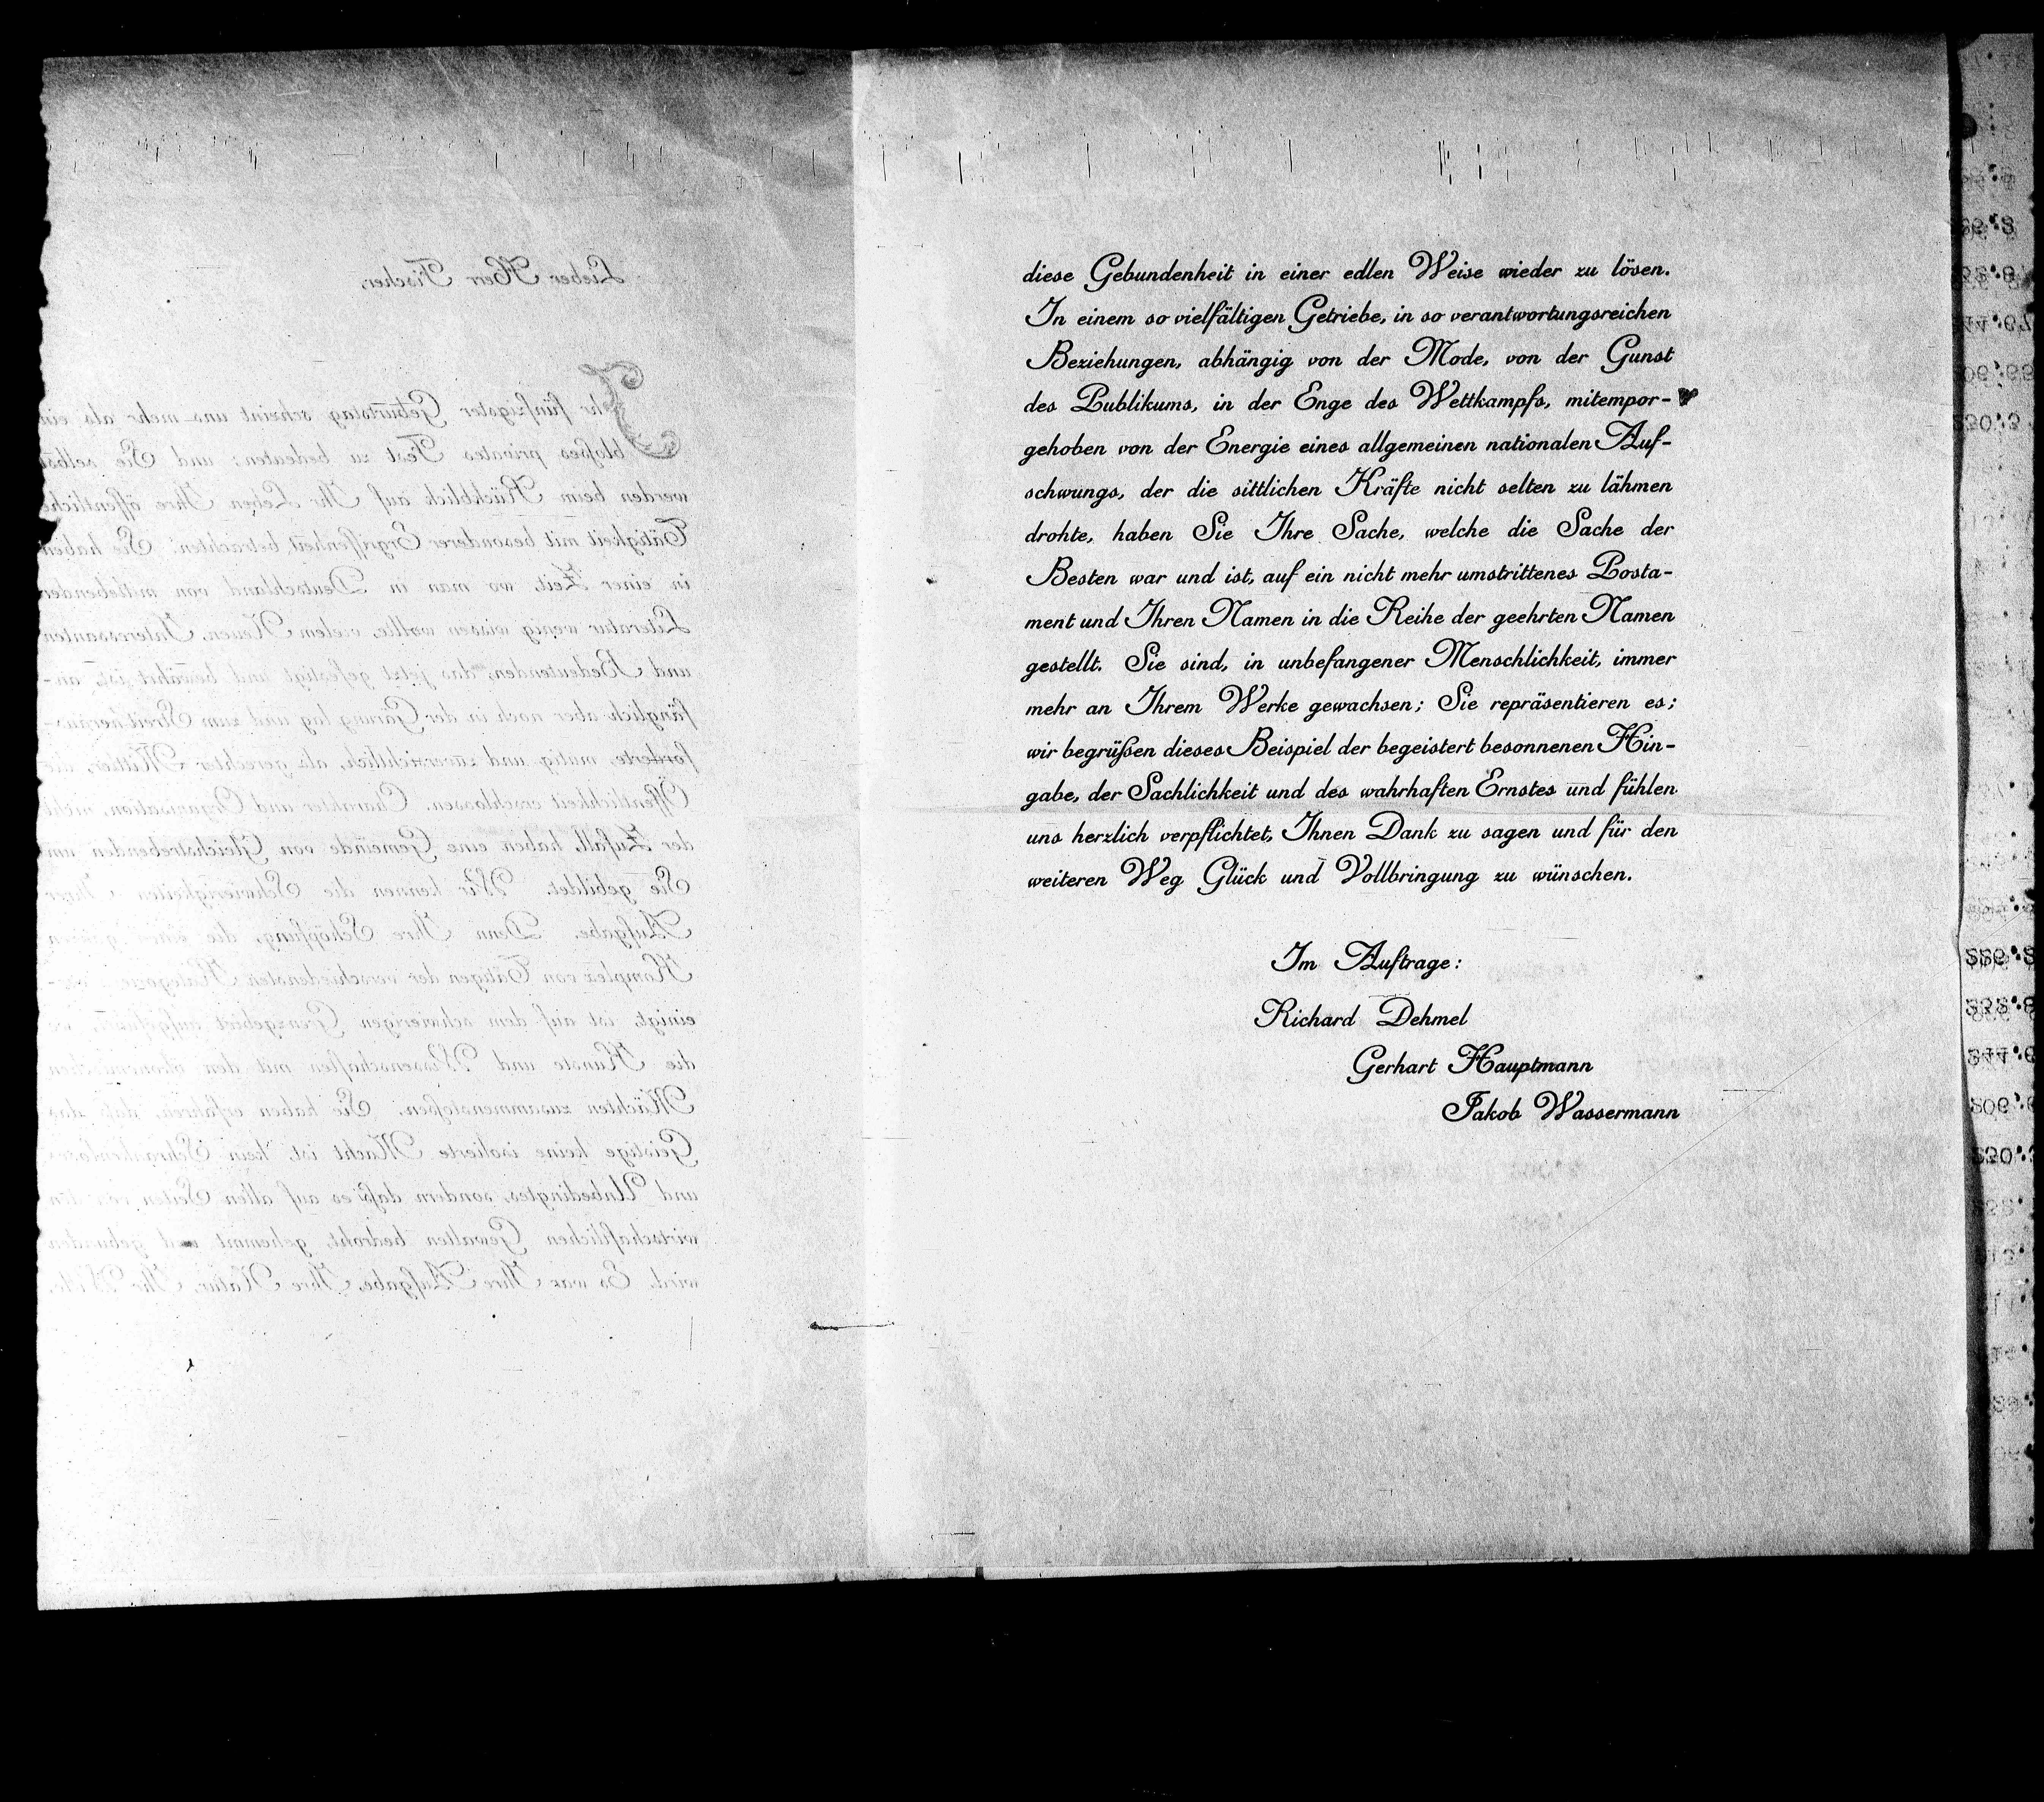 Lieber Herr Fischer,
Ihr fünfzigster Geburtstag scheint uns mehr als ein
bloßes privates Fest zu bedeuten, und Sie selbst
werden beim Rückblick auf Ihr Leben Ihre öffentliche
Tätigkeit mit besonderer Ergriffenheit betrachten. Sie haben
in einer Zeit, wo man in Deutschland von mitlebender
Literatur wenig wissen wollte, vielem Neuen, Interessanten
und Bedeutenden, das jetzt gefestigt und bewährt ist, an-
fänglich aber noch in der Gärung lag und zum Streit heraus-
forderte, mutig und zuversichtlich, als gerechter Mittler, die
Öffentlichkeit erschlossen. Charakter und Organisation, nicht
der Zufall, haben eine Gemeinde von Gleichstrebenden um
Sie gebildet. Wir kennen die Schwierigkeiten Ihrer
Aufgabe. Denn Ihre Schöpfung, die einen
Komplex von Tätigen der verschiedensten
einigt, ist auf dem schwierigen Grenzgebiet
die Künste und Wissenschaften mit den ökonomischen
Mächten zusammenstoßen. Sie haben erfahren, daß das
Geistige keine isolierte Macht ist, kein
und Unbedingtes, sondern daß es auf allen Seiten von den
wirtschaftlichen Gewalten bedroht, gehemmt und gebunden
wird. Es war Ihre Aufgabe, Ihre Natur, Ihr
diese Gebundenheit in einer edlen Weise wieder zu lösen.
In einem so vielfältigen Getriebe, in so verantwortungsreichen
Beziehungen, abhängig von der Mode, von der Gunst
des Publikums, in der Enge des Wettkampfs, mitempor-
gehoben von der Energie eines allgemeinen nationalen Auf-
schwungs, der die sittlichen Kräfte nicht selten zu lähmen
drohte, haben Sie Ihre Sache, welche die Sache der
Besten war und ist, auf ein nicht mehr umstrittenes Posta-
ment und Ihren Namen in die Reihe der geehrten Namen
gestellt. Sie sind, in unbefangener Menschlichkeit, immer
mehr an Ihrem Werke gewachsen; Sie repräsentieren es;
wir begrüßen dieses Beispiel der begeistert besonnenen Hin-
gabe, der Sachlichkeit und des wahrhaften Ernstes und fühlen
uns herzlich verpflichtet, Ihnen Dank zu sagen und für den
weiteren Weg Glück und Vollbringung zu wünschen.
Im Auftrage:
Richard Dehmel
Gerhart Hauptmann
Jakob Wassermann